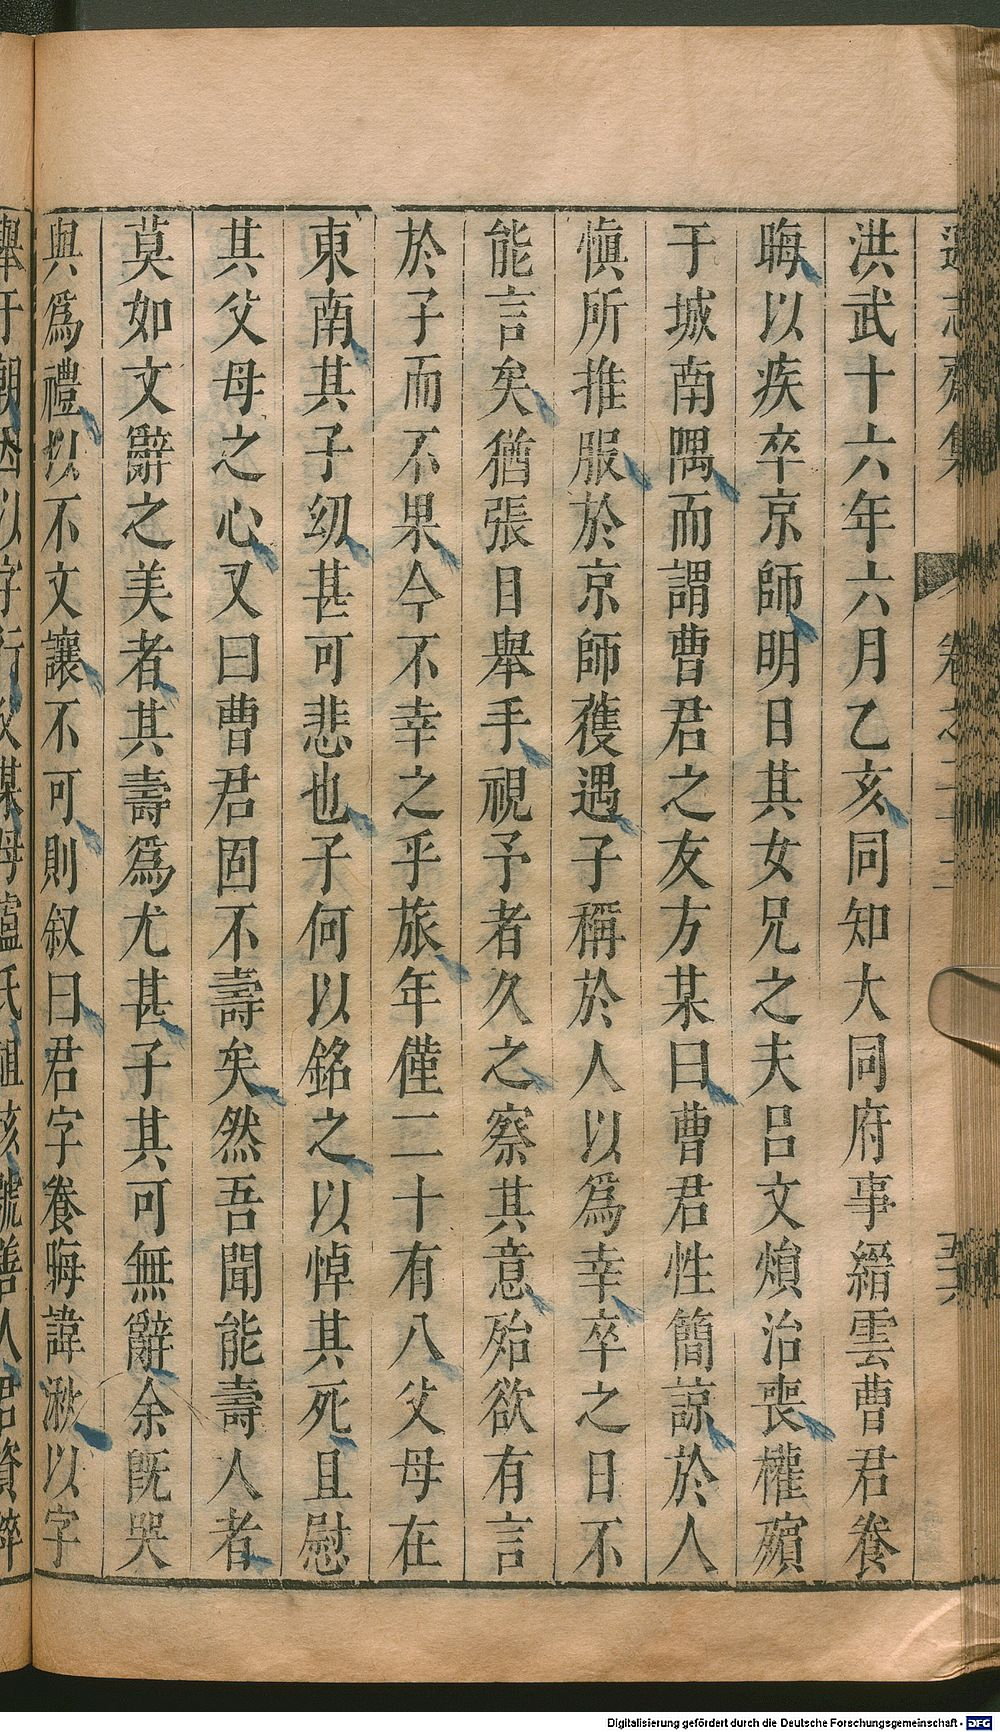 遜志齋集 卷之二十二 五六
洪武十六年六月乙亥同知大同府事縉雲曹君養
晦以疾卒京師明日其女兄之夫呂文煩治喪權殯
于城南隅而謂曹君之友方某曰曹君性簡諒於人
慎所推服於京師獲遇子稱於人以爲幸卒之日不
能言矣猶張目舉手視予者久之察其意殆欲有言
於子而不果今不幸之乎旅年僅二十有八父母在
東南其子幼甚可悲也子何以銘之以悼其死且慰
其父母之心又曰曹君固不壽矣然吾聞能壽人者
莫如文辭之美者其壽爲尤甚子其可無辭余旣哭
與爲禮以不文讓不可則叙曰君字養晦諱湫以字